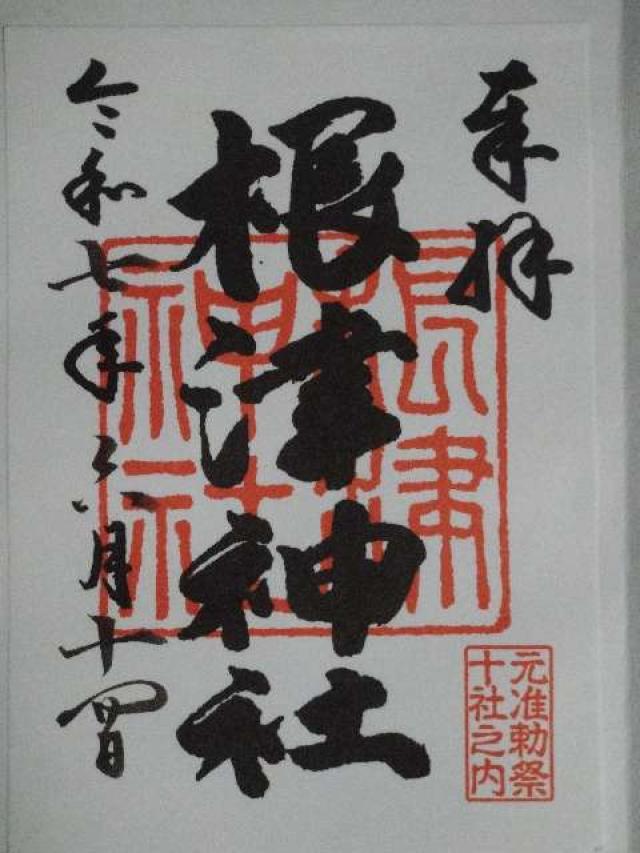 奉拝
根津神社
令和七年六月十四日
根津
神社
元准勅祭
十社之内